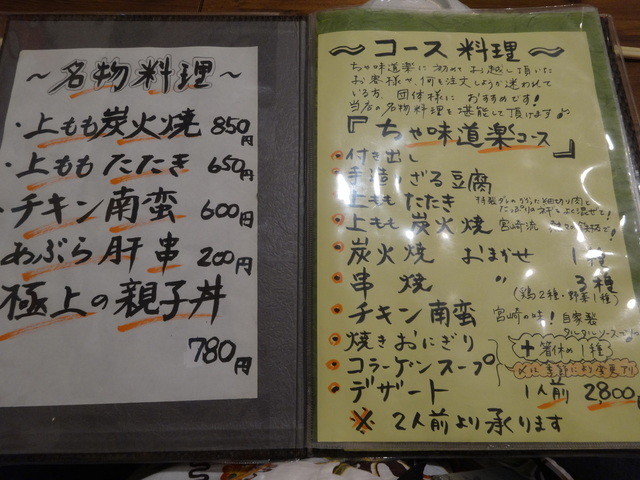 ～名物料理～
・上もも炭火焼 850円
・上ももたたき 650円
・チキン南蛮 600円
あぶら肝串 200円
極上の親子丼
780円
～コース料理～
ちゃ味道楽に初めてお越し頂いた
お客様や、何を注文しようか迷われて
いる方、団体様におすすめです!
当店の名物料理を堪能して頂けます♪
『ちゃ味道楽コース』
付き出し
手造りざる豆腐
上ももたたき
上もも炭火焼 宮崎流
炭火焼 おまかせ 1種
串焼 〃 3種
(鶏2種・野菜1種)
チキン南蛮 宮崎の味! 自家製
タルタルソース
焼きおにぎり
+箸休め1種
コラーゲンスープ
デザート
1人前 2,800円
※ 2人前より承ります